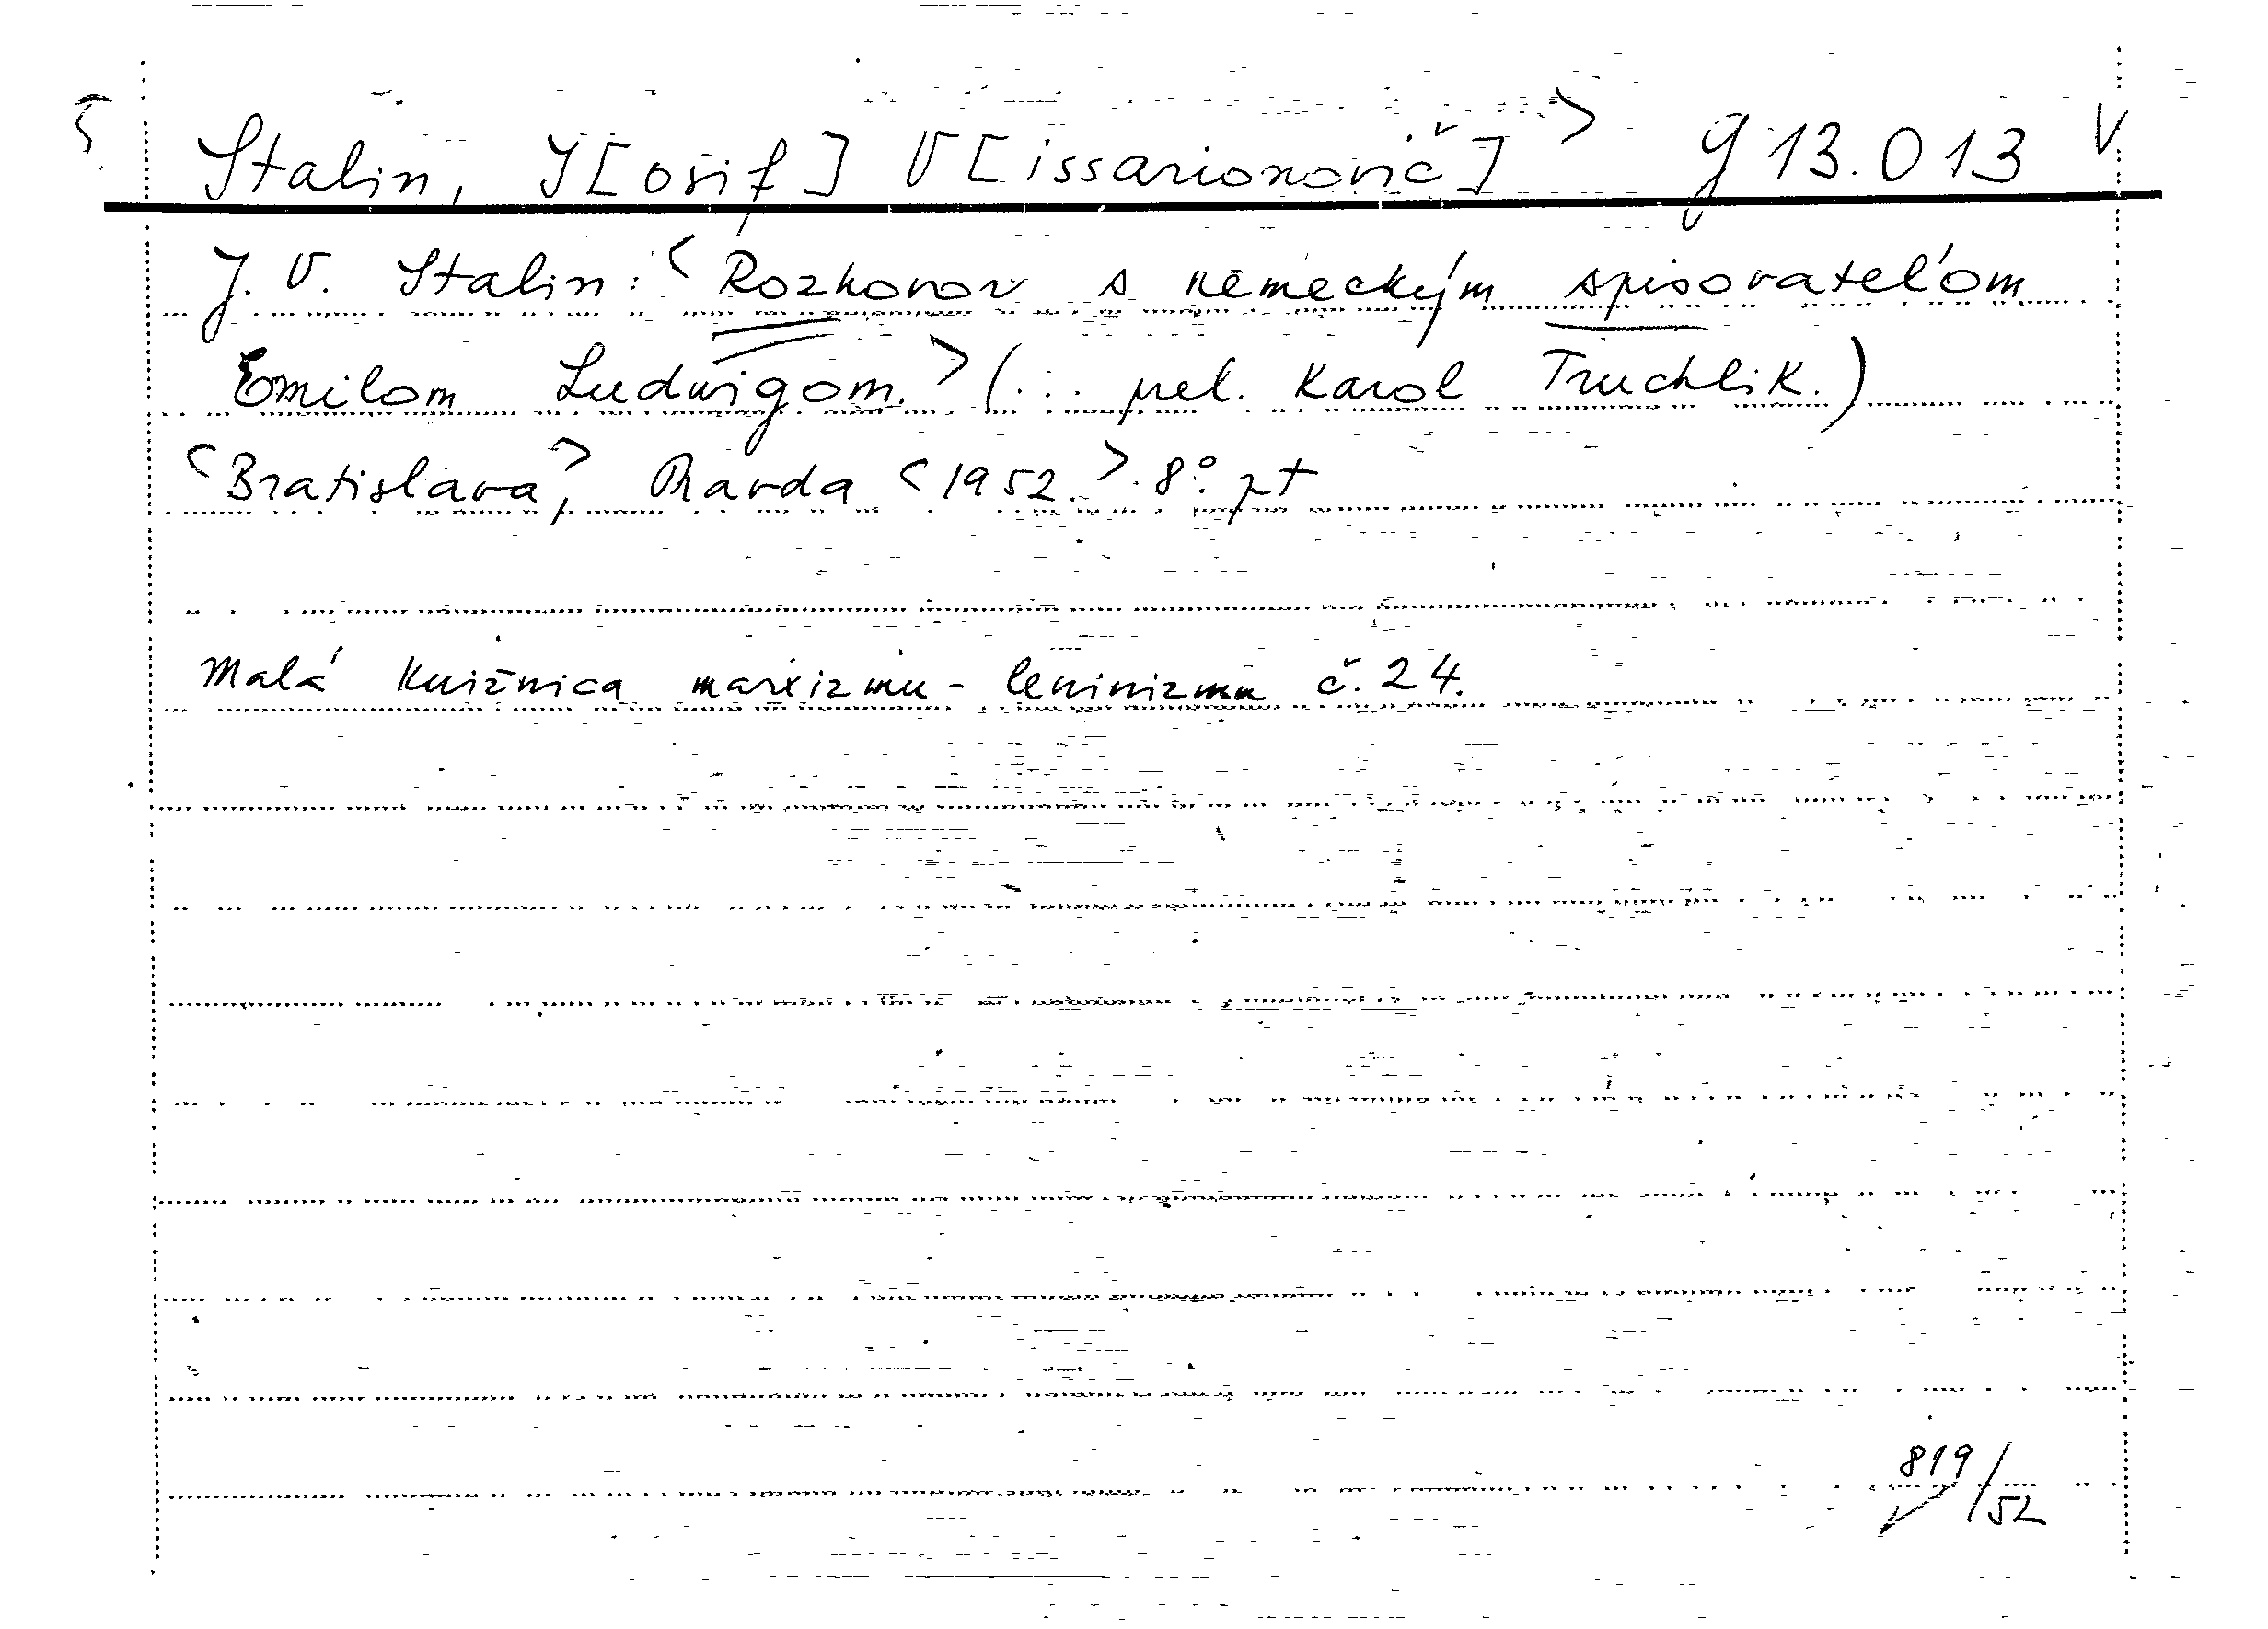 <Stalin, J[osif] V[issarionovič]> g 13.013 V
J. V. Stalin: <Rozhovor s nemeckým spisovateľom
Emilom Ludwigom.> (... prel. Karol Truchlik.)
<Bratislava,> Pravda <1952.> 8°. pt
Malá knižnica marxizmu-leninizmu č. 24.
819/52